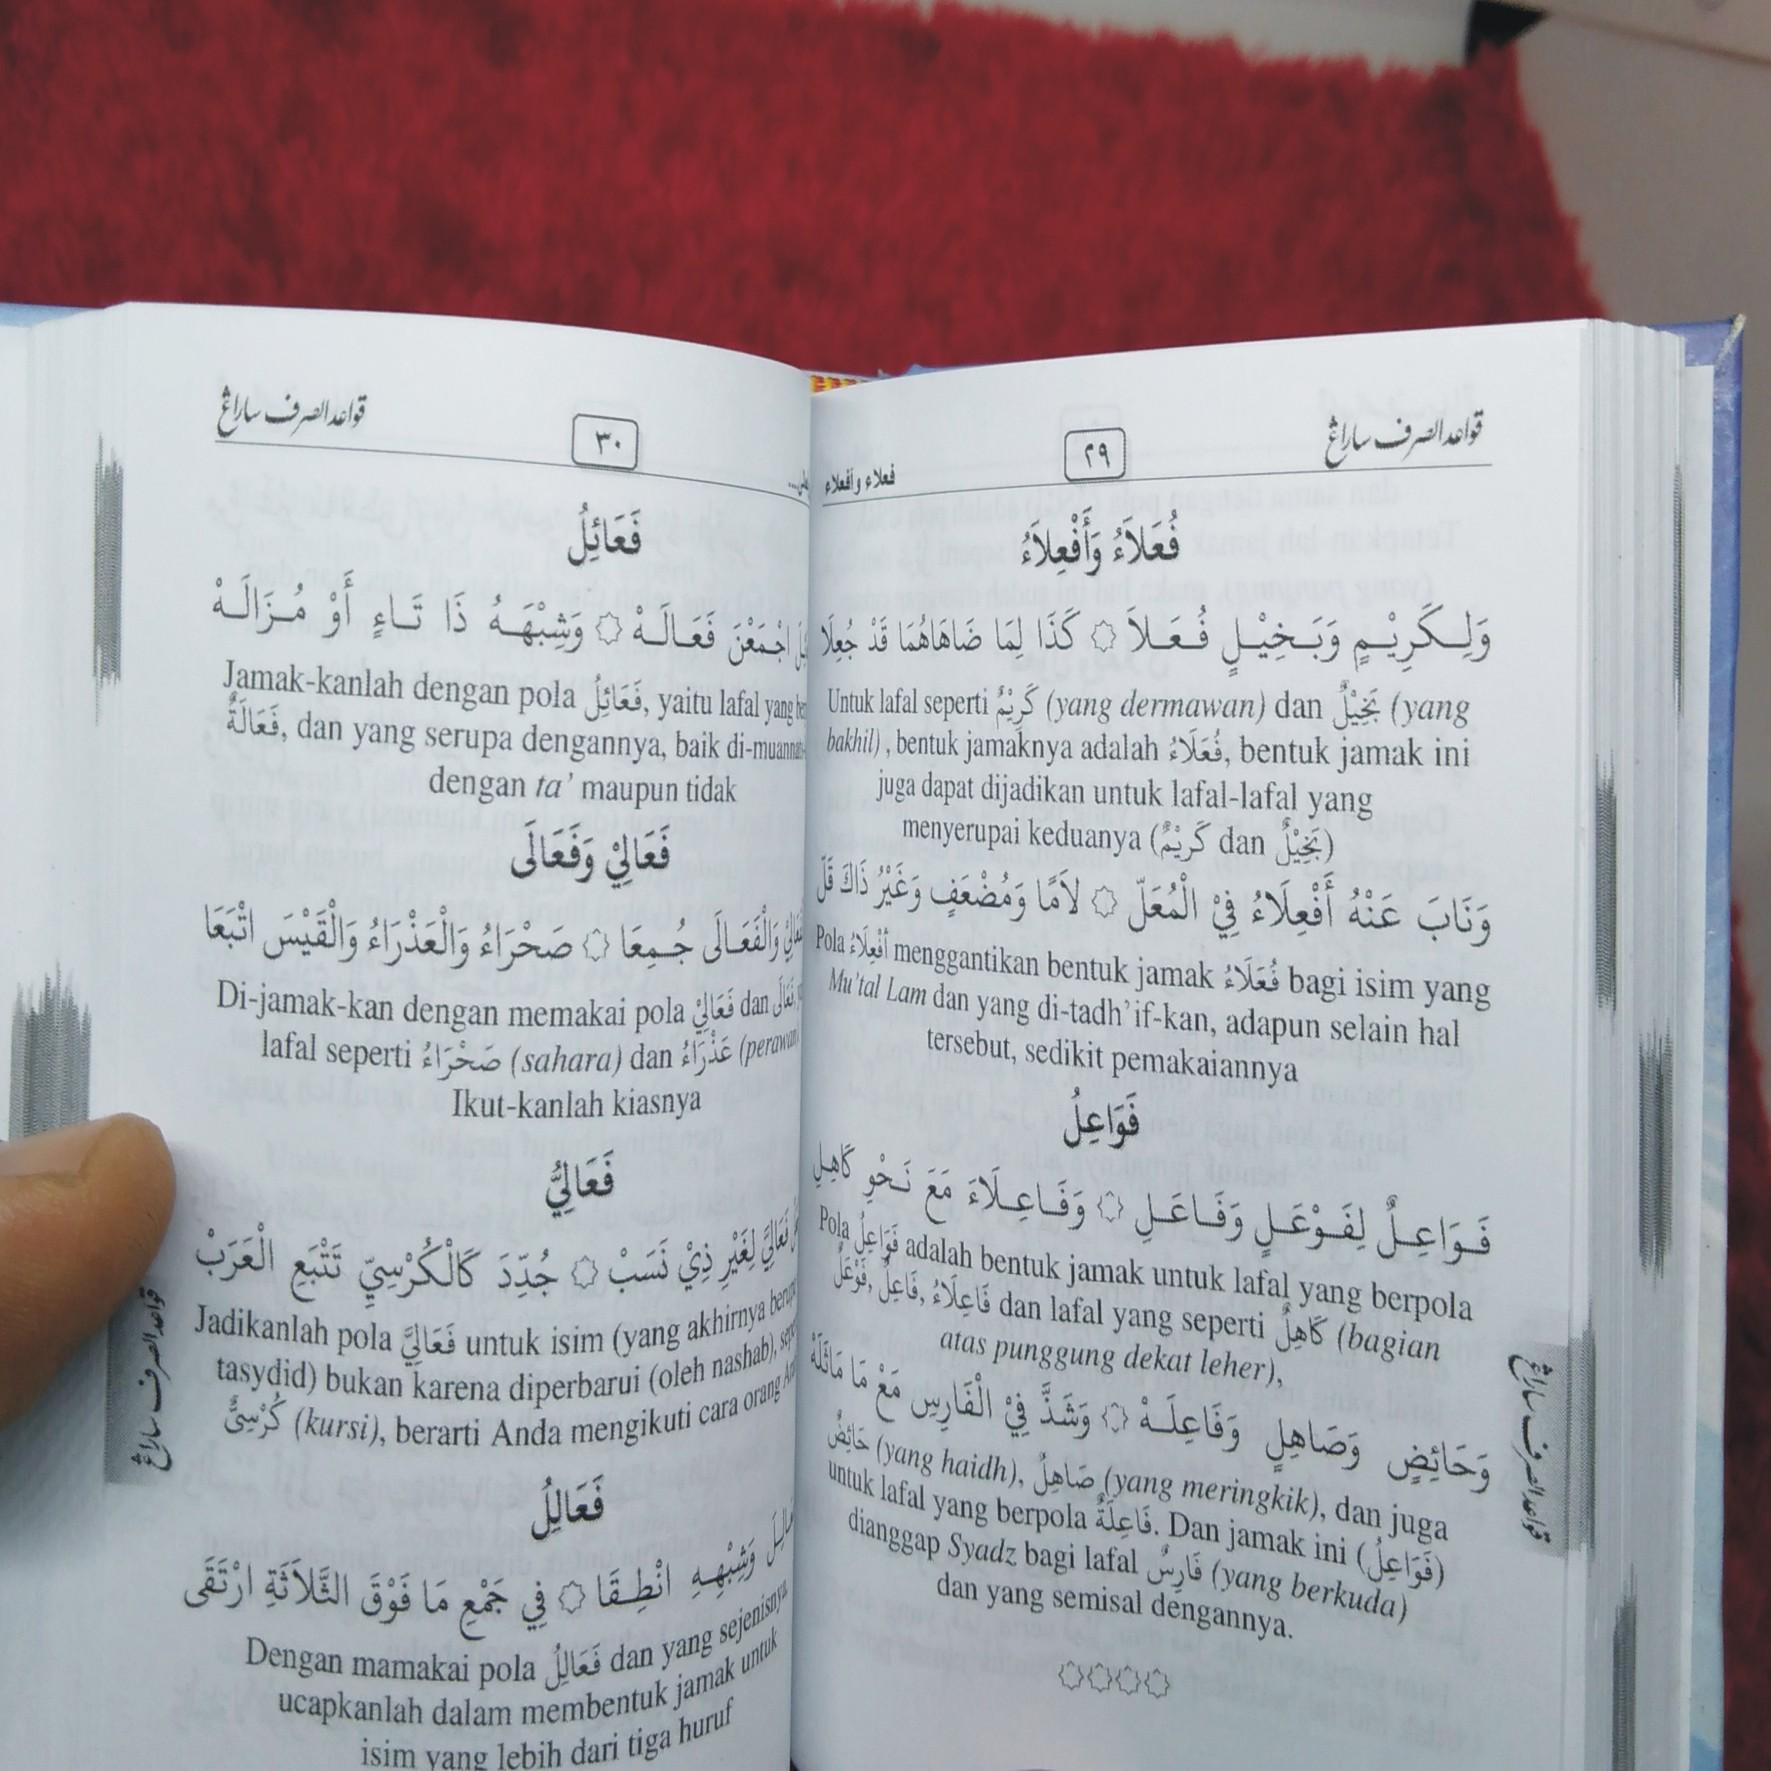 قواعد الصرف ساراڠ
٢٩
فعلاء وأفعلاء
فُعَلَاءُ وَأَفْعِلَاءُ
وَلِكَرِيْمٍ وَبَخِيْلٍ فُعَلاَ ۞ كَذَا لِمَا ضَاهَاهُمَا قَدْ جُعِلَا
Untuk lafal seperti كَرِيْمٌ (yang dermawan) dan بَخِيْلٌ (yang
bakhil), bentuk jamaknya adalah فُعَلَاءُ, bentuk jamak ini
juga dapat dijadikan untuk lafal-lafal yang
menyerupai keduanya (كَرِيْمٌ dan بَخِيْلٌ)
وَنَابَ عَنْهُ أَفْعِلاَءُ فِيْ الْمُعَلّ ۞ لاَمًا وَمُضْعَفٍ وَغَيْرُ ذَاكَ قَلّ
Pola أَفْعِلَاءُ menggantikan bentuk jamak فُعَلَاءُ bagi isim yang
Mu'tal Lam dan yang di-tadh'if-kan, adapun selain hal
tersebut, sedikit pemakaiannya
فَوَاعِلُ
فَوَاعِلٌ لِفَوْعَلٍ وَفَاعَلِ ۞ وَفَاعِلَاءَ مَعَ نَحْوِ كَاهِلِ
Pola فَوَاعِلُ adalah bentuk jamak untuk lafal yang berpola
فَوْعَلٌ, فَاعِلٌ, فَاعِلَاءُ dan lafal yang seperti كَاهِلٌ (bagian
atas punggung dekat leher),
وَحَائِضٍ وَصَاهِلٍ وَفَاعِلَهْ ۞ وَشَذَّ فِيْ الْفَارِسِ مَعْ مَا مَاثَلَهْ
حَائِضٌ (yang haidh), صَاهِلٌ (yang meringkik), dan juga
untuk lafal yang berpola فَاعِلَةٌ. Dan jamak ini (فَوَاعِلُ)
dianggap Syadz bagi lafal فَارِسٌ (yang berkuda)
dan yang semisal dengannya.
قواعد الصرف ساراڠ
قواعد الصرف ساراڠ
٣٠
فَعَائِلُ
اجْمَعَنْ فَعَالَهْ ۞ وَشِبْهَهُ ذَا تَاءٍ أَوْ مُزَالَهْ
Jamak-kanlah dengan pola فَعَائِلُ, yaitu lafal yang
فَعَالَةٌ, dan yang serupa dengannya, baik
dengan ta' maupun tidak
فَعَالِيْ وَفَعَالَى
وَالْفَعَالَى جُمِعَا ۞ صَحْرَاءُ وَالْعَذْرَاءُ وَالْقَيْسَ اتْبَعَا
Di-jamak-kan dengan memakai pola فَعَالِيْ dan
lafal seperti صَحْرَاءُ (sahara) dan عَذْرَاءُ (perawan)
Ikut-kanlah kiasnya
فَعَالِيُّ
فَعَالِيَّ لِغَيْرِ ذِيْ نَسَبْ ۞ جُدِّدَ كَالْكُرْسِيِّ تَتْبَعِ الْعَرَبْ
Jadikanlah pola فَعَالِيَّ untuk isim (yang akhirnya
tasydid) bukan karena diperbarui (oleh nashab),
كُرْسِيٌّ (kursi), berarti Anda mengikuti cara orang
فَعَالِلُ
وَشِبْهِهِ انْطِقَا ۞ فِي جَمْعِ مَا فَوْقَ الثَّلاَثَةِ ارْتَقَى
Dengan mamakai pola فَعَالِلُ dan yang sejenisnya
ucapkanlah dalam membentuk jamak untuk
isim yang lebih dari tiga huruf
قواعد الصرف ساراڠ